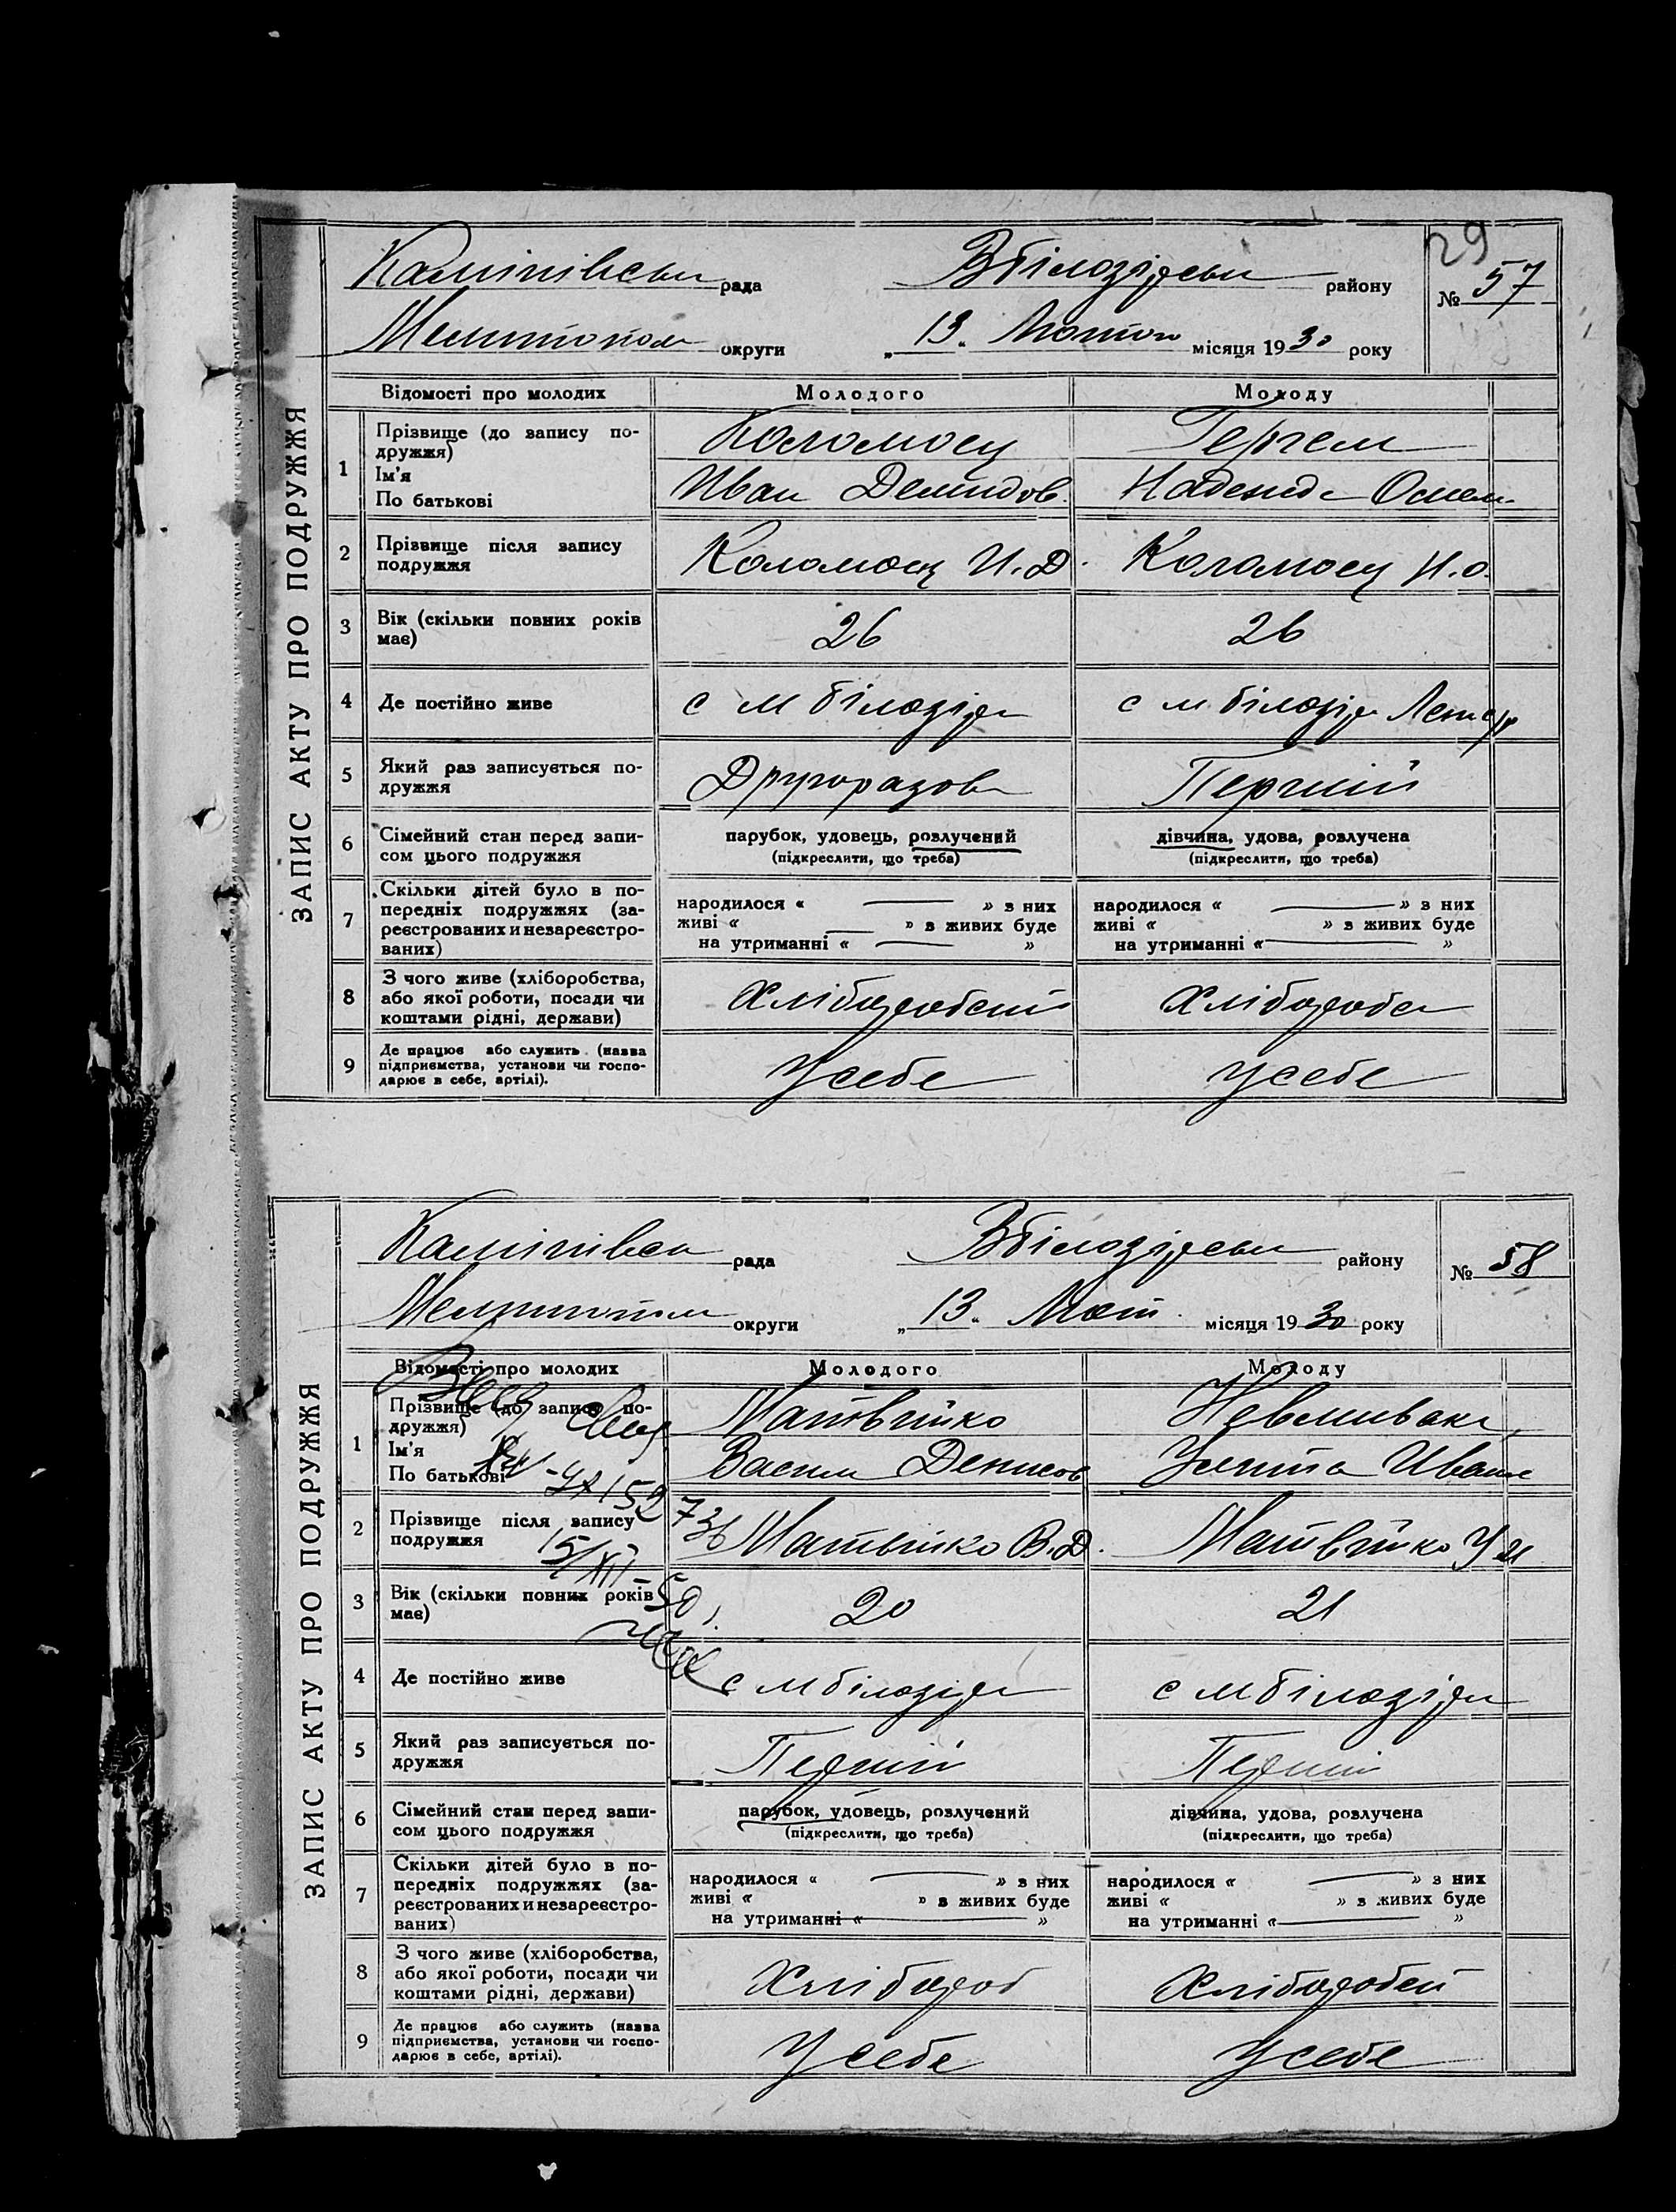 29
рада Вбілозірськ району № 57
Мелитопол округи „ 13 “ Лютого місяця 1930 року
ЗАПИС АКТУ ПРО ПОДРУЖЖЯ
Відомості про молодих Молодого Молоду
1 Прізвище (до запису по-
дружжя) Коломоец
Ім'я
По батькові Иван Демидов. Надежда
2 Прізвище після запису
подружжя Коломоец И.Д. Коломоец Н.О.
3 Вік (скільки повних років
має) 26 26
4 Де постійно живе с м білозірк с м білозірк
5 Який раз записується по-
дружжя Другоразов Перший
6 Сімейний стан перед запи-
сом цього подружжя парубок, удовець, розлучений дівчина, удова, розлучена
(підкреслити, що треба) (підкреслити, що треба)
7 Скільки дітей було в по-
передніх подружжях (за-
реєстрованих и незареєстро-
ваних)
народилося « — » з них народилося « — » з них
живі « — » в живих буде живі « » в живих буде
на утриманні « — » на утриманні « — »
8 З чого живе (хліборобства,
або якої роботи, посади чи
коштами рідні, держави) Хліборобств Хлібороб
9 Де працює або служить (назва
підприємства, установи чи госпо-
дарює в себе, артілі). У себе у себе
рада Вбілозірськ району № 58
Мелитопол округи „ 13 “ Лют. місяця 1930 року
ЗАПИС АКТУ ПРО ПОДРУЖЖЯ
Відомості про молодих Молодого Молоду
1 Прізвище (до запису по-
дружжя) Матвійко
Ім'я
По батькові Васил Денисов Улита Иван
2 Прізвище після запису
подружжя Матвійко В.Д. Матвійко У И
15/XII-50
3 Вік (скільки повних років
має) 20 21
4 Де постійно живе с м білозірк с м білозірк
5 Який раз записується по-
дружжя Перший Перший
6 Сімейний стан перед запи-
сом цього подружжя парубок, удовець, розлучений дівчина, удова, розлучена
(підкреслити, що треба) (підкреслити, що треба)
7 Скільки дітей було в по-
передніх подружжях (за-
реєстрованих и незареєстро-
ваних)
народилося « — » з них народилося « — » з них
живі « » в живих буде живі « » в живих буде
на утриманні « — » на утриманні « — »
8 З чого живе (хліборобства,
або якої роботи, посади чи
коштами рідні, держави) Хлібороб Хлібороб
9 Де працює або служить (назва
підприємства, установи чи госпо-
дарює в себе, артілі). У себе У себе